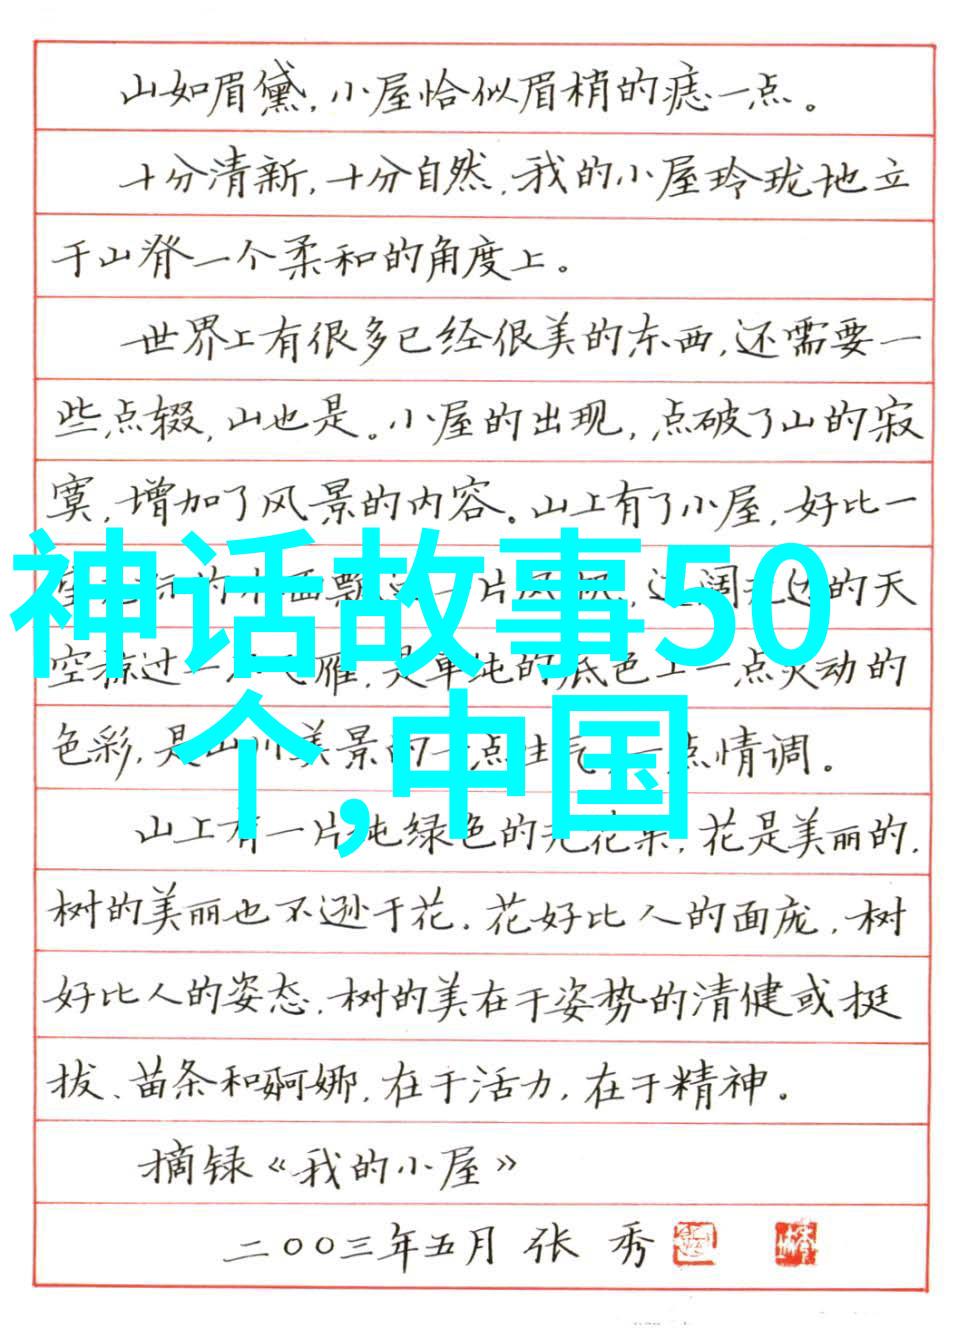 山如眉黛,小屋恰似眉梢的痣一点。
十分清新,十分自然,我的小屋玲珑地立
于山脊一个柔和的角度上。
世界上有很多已经很美的东西,还需要一
些点缀,山也是。小屋的出现,点破了山的寂
寞,增加了风景的内容。山上有了小屋,好比一
神话故事50
个,中国
片风帆,辽阔无边的天
空掠过一 雁,是单纯的底色上一点灵动的
色彩,是山川美景的一点生气,一点情调。
山上有一片纯绿色的无花果,花是美丽的,
树的美丽也不逊于花。花好比人的面庞,树
好比人的姿态。树的美在于姿势的清健或挺
拔、苗条和婀娜,在于活力,在于精神。
摘录《我的小屋》
二〇〇三年五月 张 秀